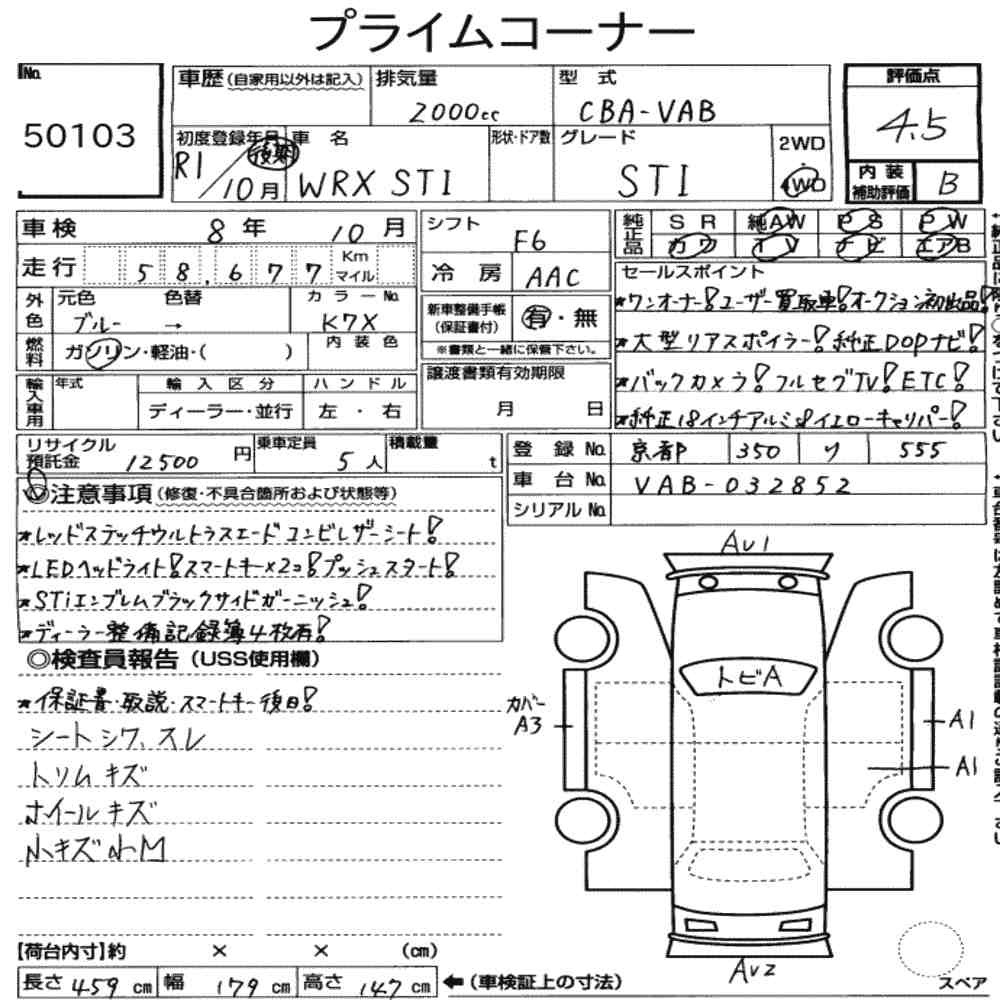 プライムコーナー
No.
50103
車歴(自家用以外は記入)
排気量
2000cc
型 式
CBA-VAB
評価点
4.5
初度登録年月
R1/10月
後期
車 名
WRX STI
形状・ドア数
グレード
STI
2WD
4WD
内 装
補助評価
B
車検 8年 10月
走行 58,677 Km
マイル
シフト
F6
冷 房
AAC
純正品
SR 純AW PS PW
カワ TV ナビ エアB
外色
元色 色替 カラーNo.
ブルー → K7X
燃料
ガソリン・軽油・( )
内 装 色
新車整備手帳
(保証書付)
有・無
※書類と一緒に保管下さい。
セールスポイント
★ワンオーナー!ユーザー買取車!オークション初出品!
★大型リアスポイラー!純正DOPナビ!
★バックカメラ!フルセグTV!ETC!
★純正18インチアルミ&イエローキャリパー!
輸入車用
年式
輸 入 区 分
ディーラー・並行
ハ ン ド ル
左 ・ 右
譲渡書類有効期限
月 日
リサイクル
預託金 12500 円
乗車定員
5人
積載量
t
登 録 No. 京都 350 リ 555
車 台 No. VAB-032852
シリアル No.
◎注意事項(修復・不具合箇所および状態等)
★レッドステッチウルトラスエードコンビレザーシート!
★LEDヘッドライト!スマートキー×2コ!プッシュスタート!
★STiエンブレムブラックサイドガーニッシュ!
★ディーラー整備記録簿4枚有!
◎検査員報告(USS使用欄)
★保証書・取説・スマートキー後日!
シートシワ、スレ
トリムキズ
ホイールキズ
小キズ小M
AU1
トビA
カバー
A3
A1
A1
AU2
【荷台内寸】約 × × (cm)
長さ 459 cm 幅 179 cm 高さ 147 cm ←(車検証上の寸法)
スペア